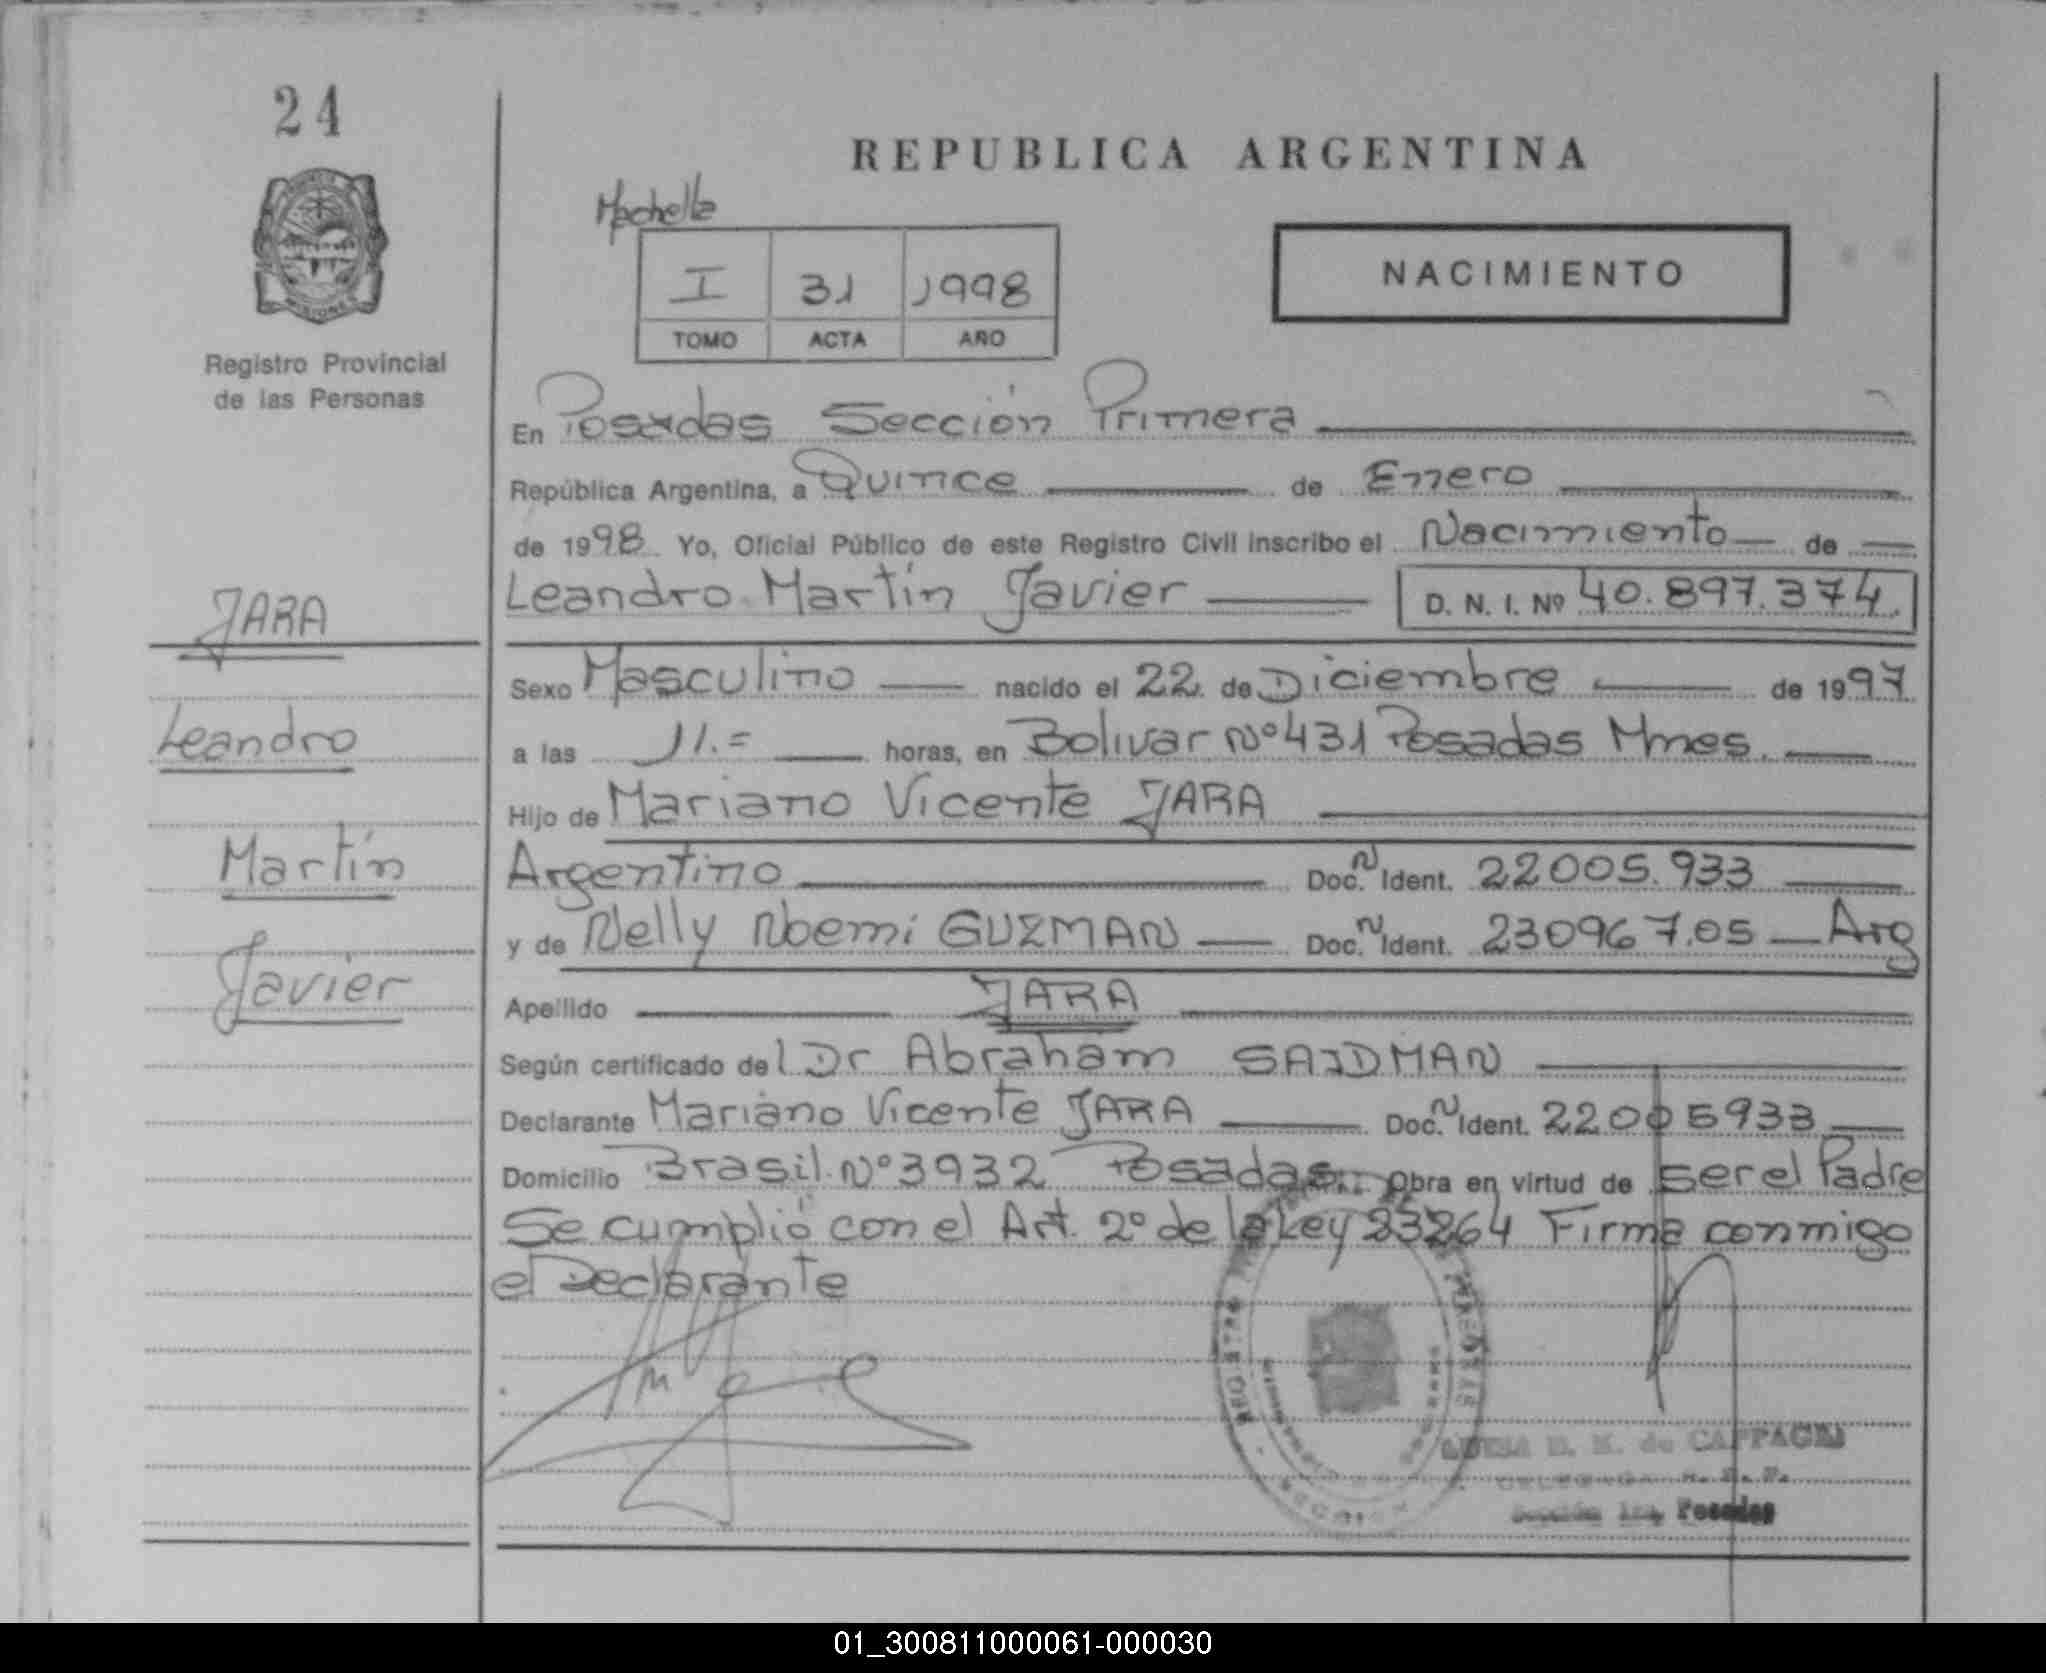 24
REPUBLICA ARGENTINA
I 31 1998
TOMO ACTA AÑO
NACIMIENTO
MISIONES
Registro Provincial
de las Personas
En Posadas Sección Primera
República Argentina, a Quince de Enero
de 1998 Yo, Oficial Público de este Registro Civil inscribo el Nacimiento de
Leandro Martín Javier D. N. I. Nº 40.897.374.
JARA
Leandro
Martín
Javier
Sexo Masculino nacido el 22 de Diciembre de 1997
a las 11.= horas, en Bolivar Nº 431 Posadas Mnes.
Hijo de Mariano Vicente JARA
Argentino Doc. N Ident. 22005.933
y de Nelly Noemi GUZMAN Doc. N Ident. 230967.05 Arg
Apellido JARA
Según certificado del Dr Abraham SAIDMAN
Declarante Mariano Vicente JARA Doc. N Ident. 22005933
Domicilio Brasil Nº 3932 Posadas. Obra en virtud de ser el Padre
Se cumplió con el Art. 2º de la Ley 23264 Firma conmigo
el Declarante
REGISTRO
SECCION
D. M. de
Sección 1ra. Posadas
01_300811000061-000030